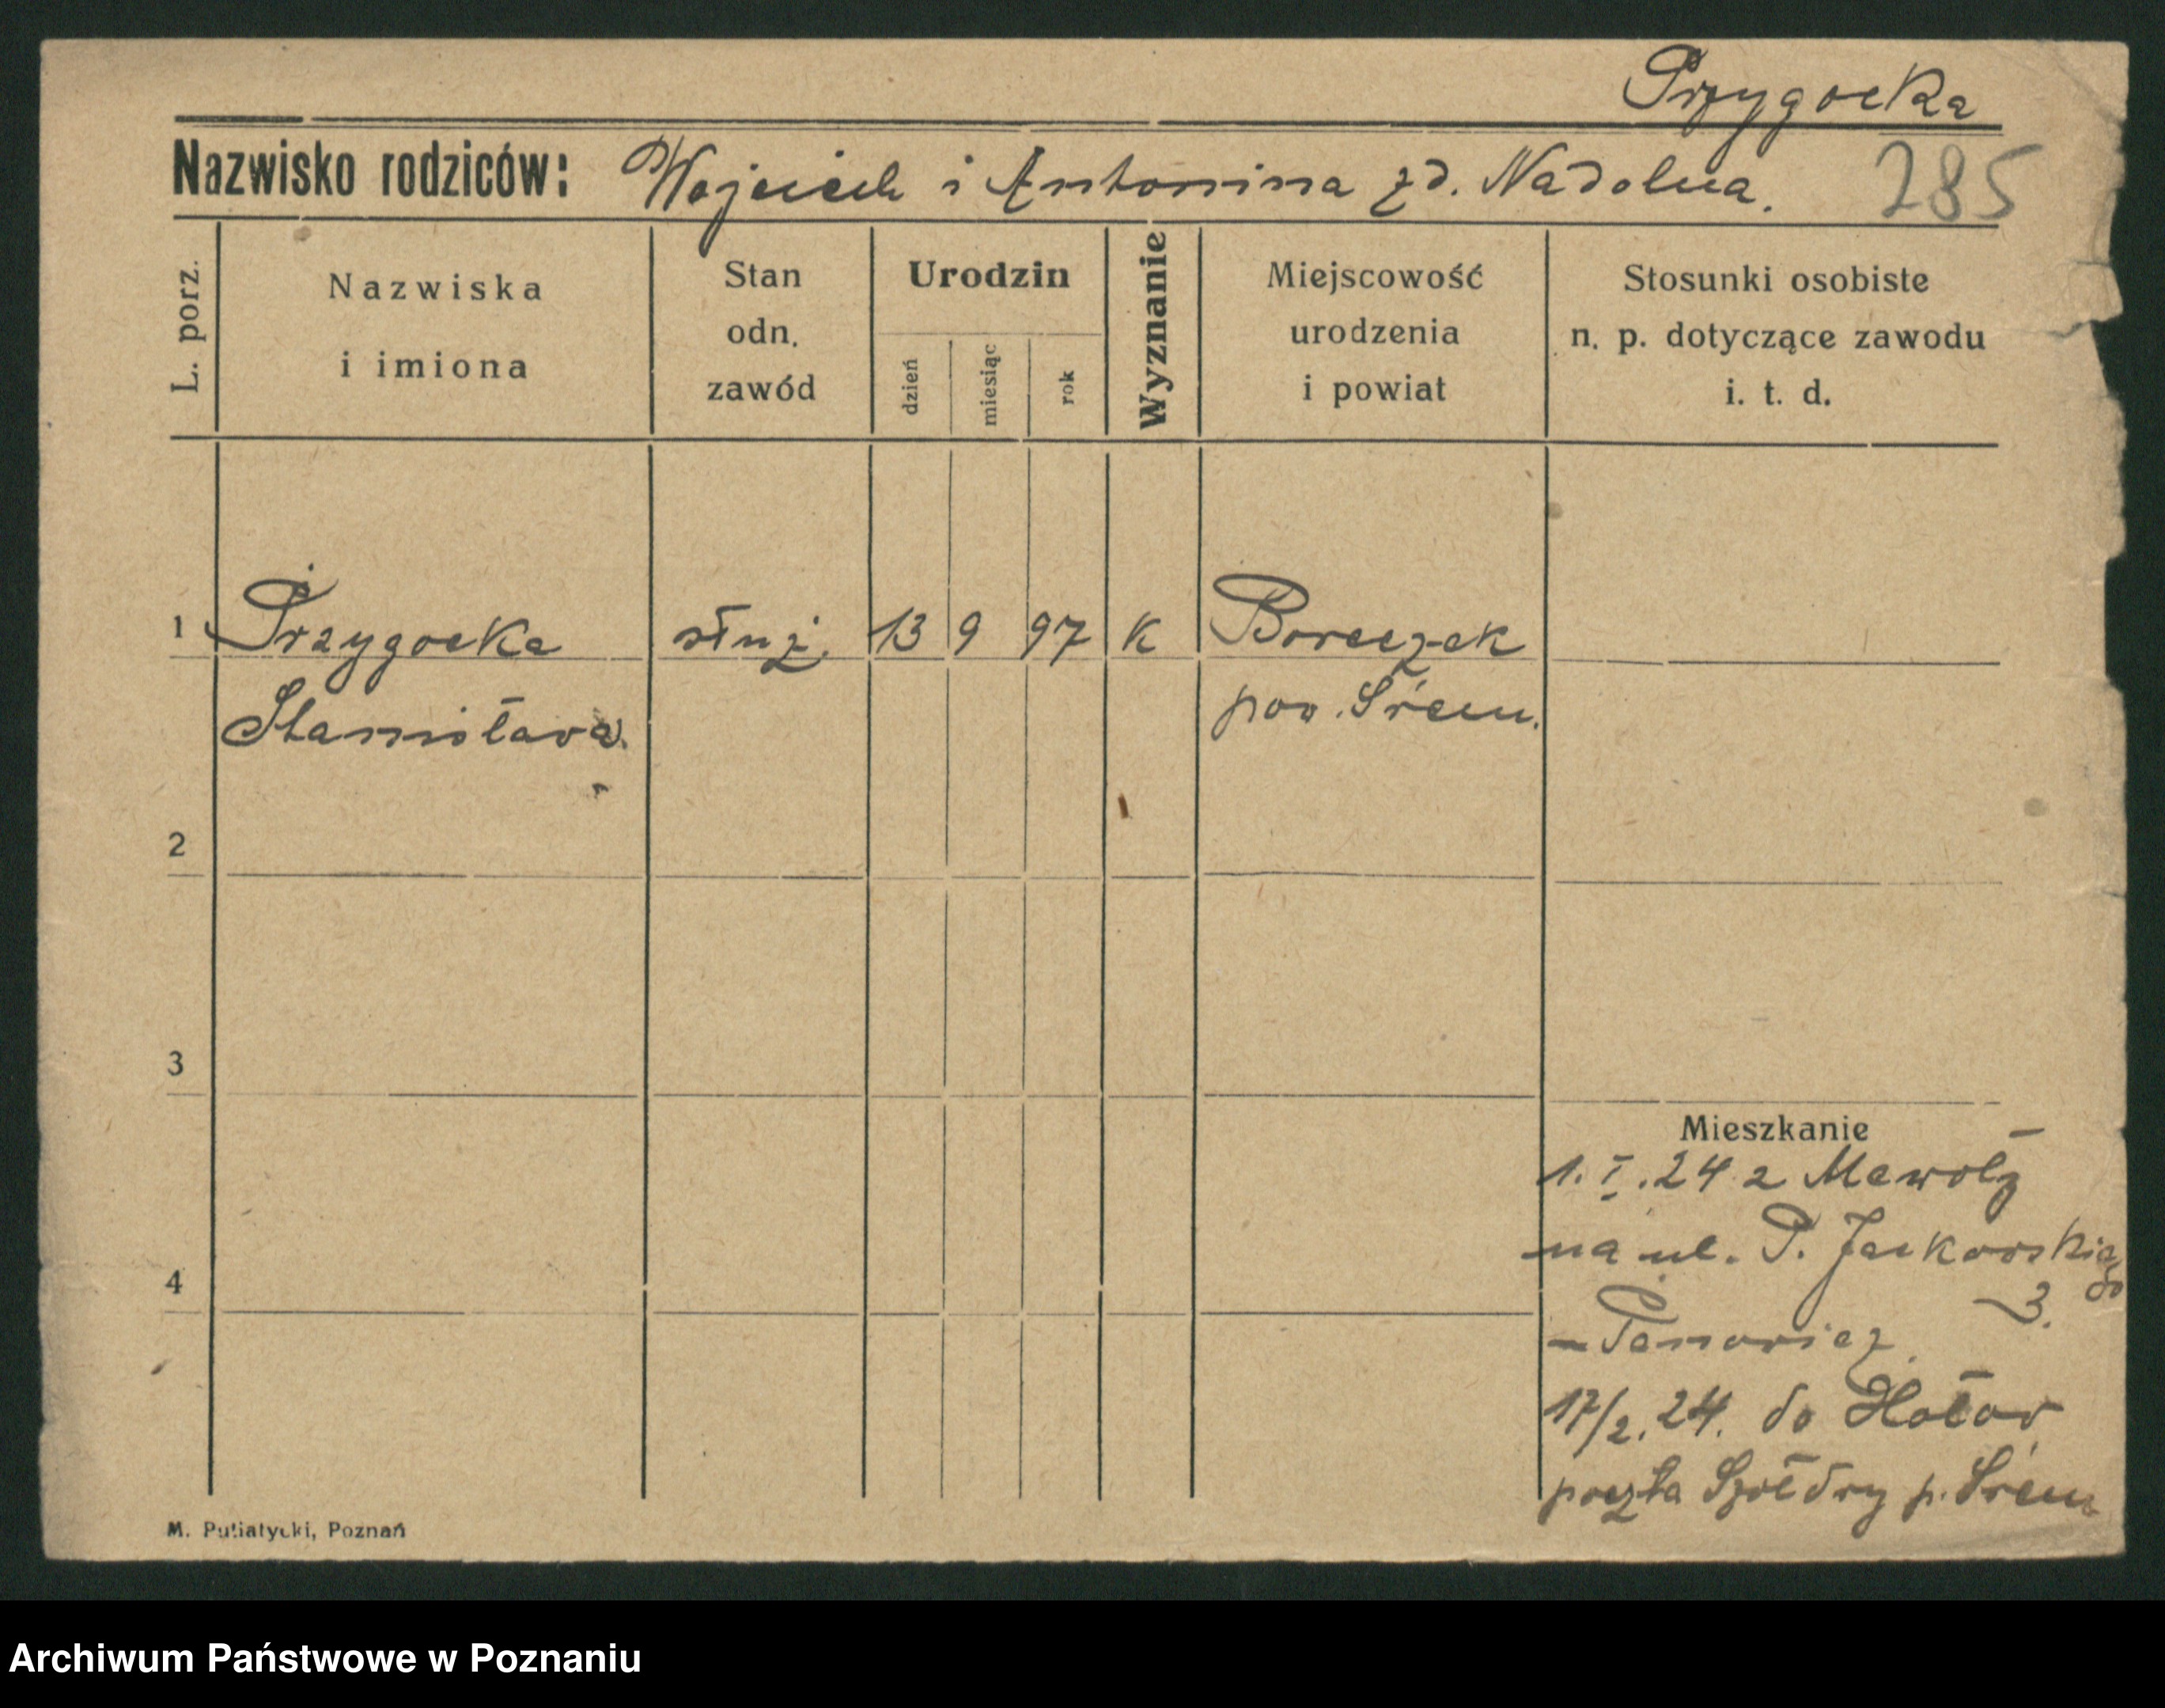 Przygocka
Nazwisko rodziców: Wojciech i Antonina zd. Nadolna. 285
L. porz.
Nazwiska
i imiona
Stan
odn.
zawód
Urodzin
dzień
miesiąc
rok
Wyznanie
Miejscowość
urodzenia
i powiat
Stosunki osobiste
n. p. dotyczące zawodu
i. t. d.
1 Przygocka służ. 13 9 97 K Boreczek
Stanisława. pow. Śrem.
2
3
Mieszkanie
1. I. 24 z
na ul. P. Jackowskiego
3.
4
17/2. 24. do
poczta Szołdry p. Śrem
M. Putiatycki, Poznań
Archiwum Państwowe w Poznaniu